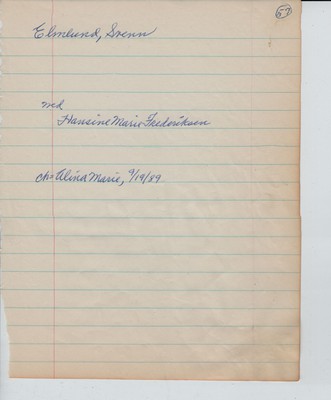 57
Elmlund, Svenn
md
Hansine Marie Frederiksen
chs Alina Marie, 9/19/89